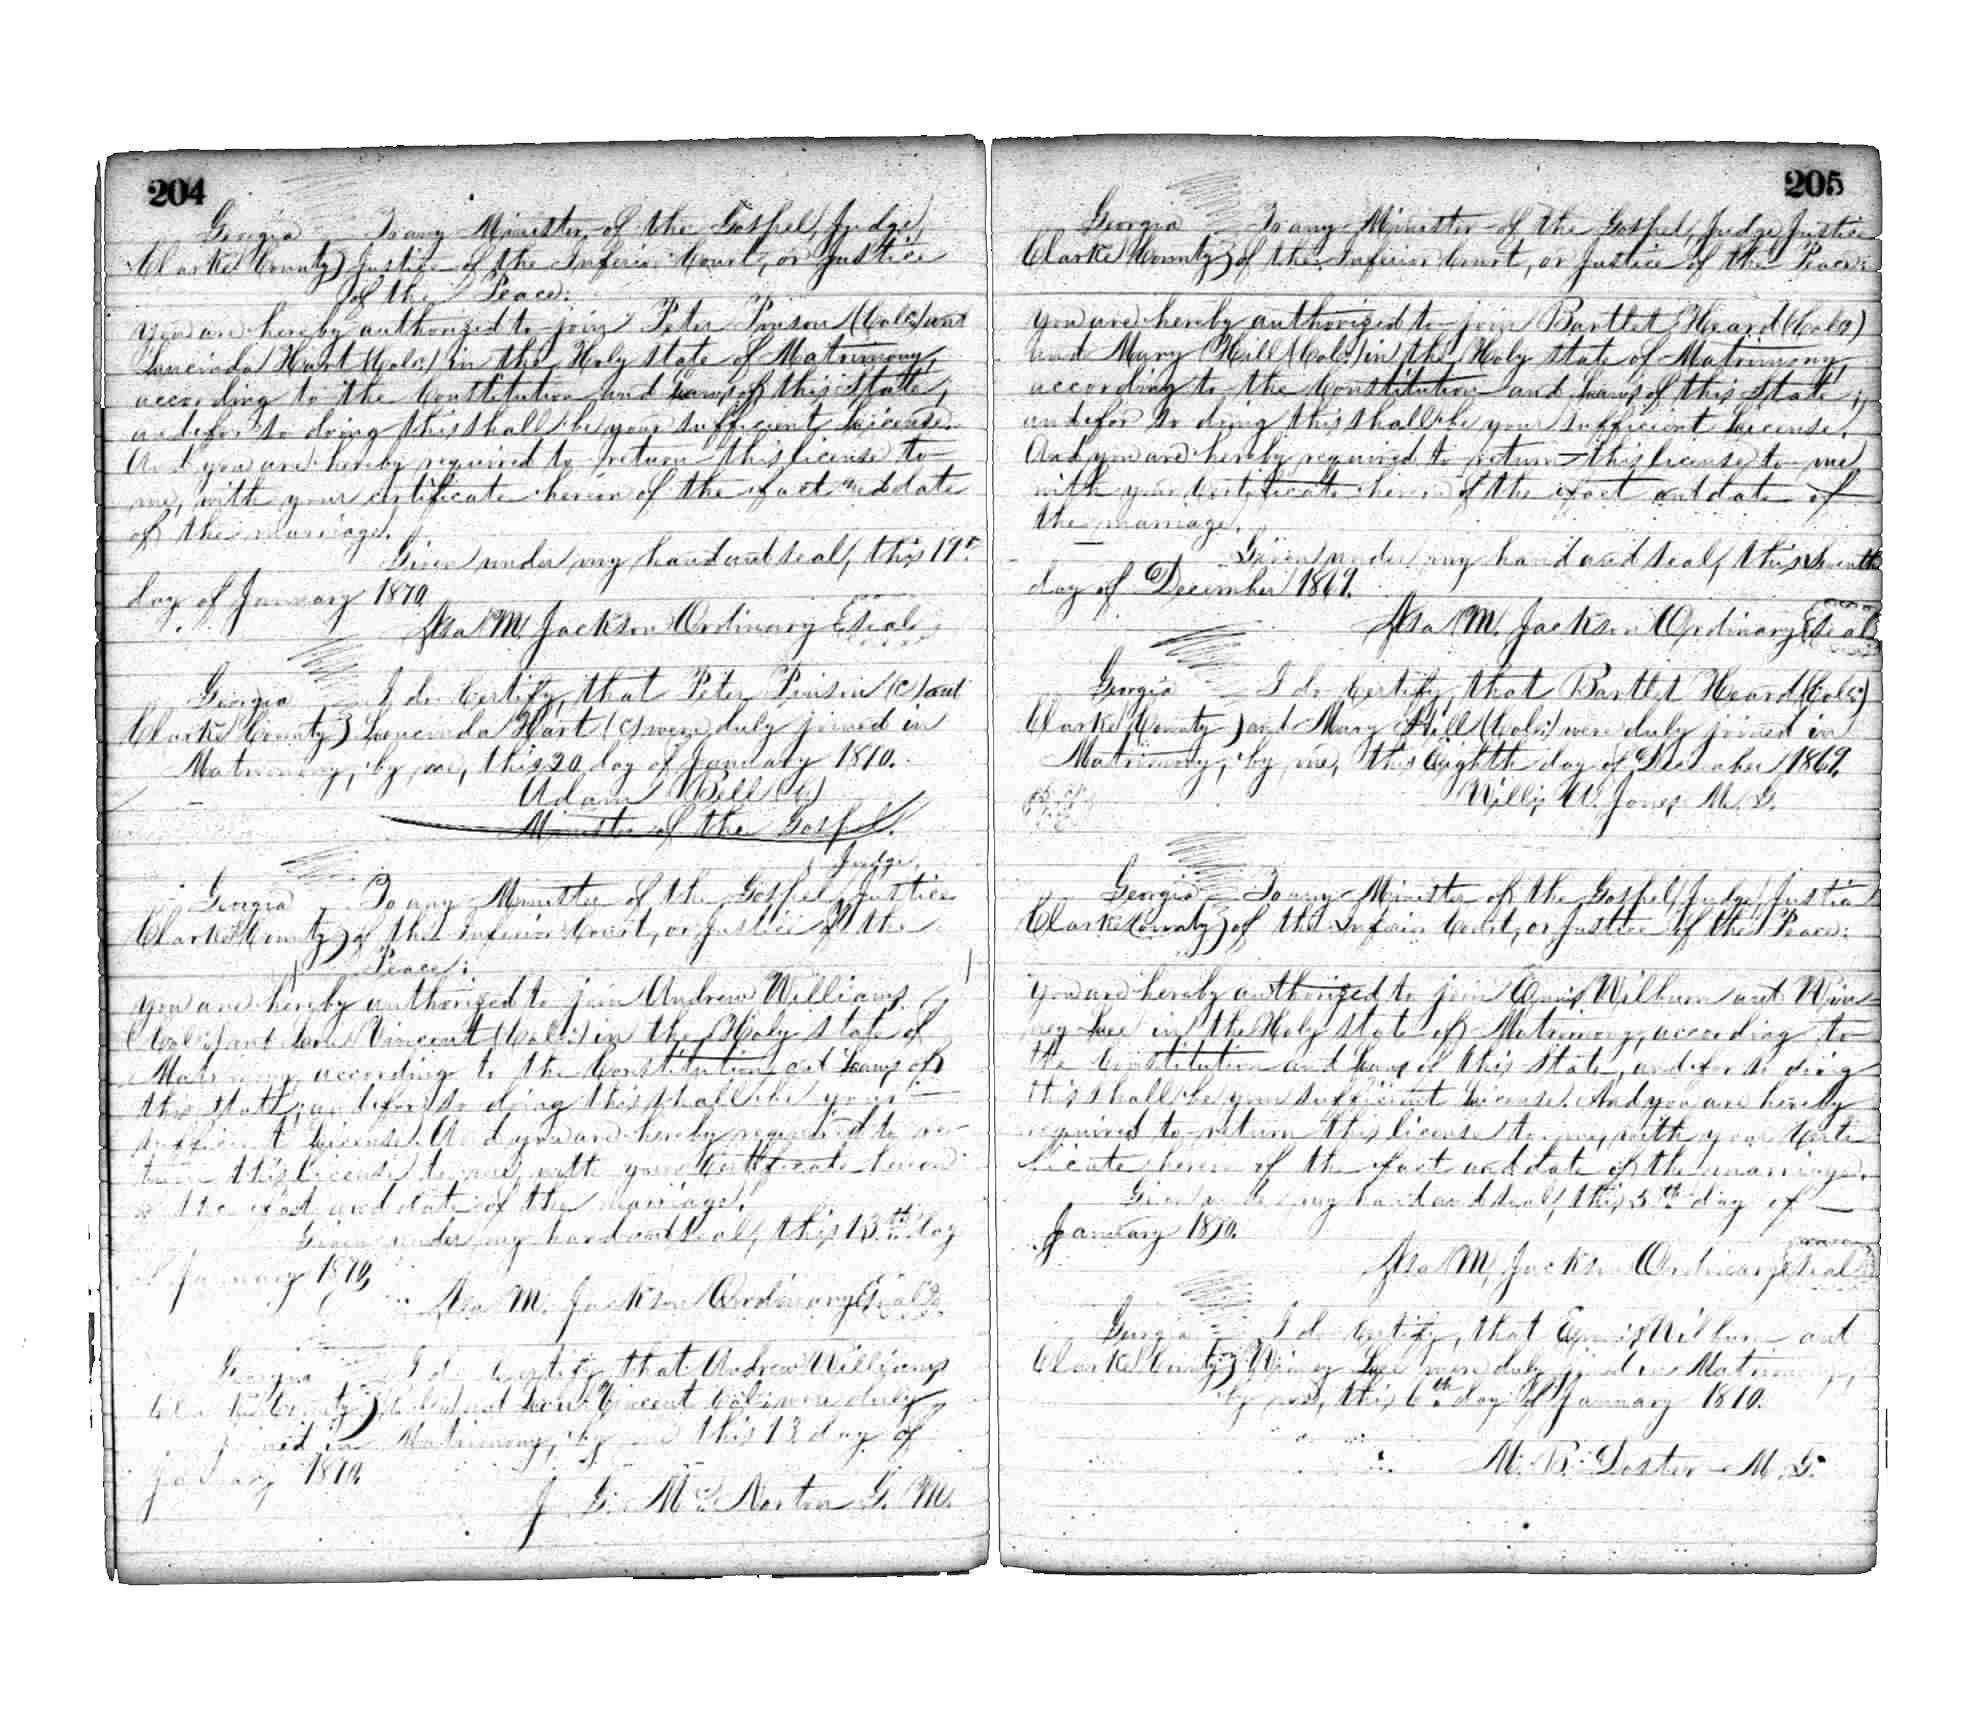 204
Georgia To any Minister of the Gospel, Judge,
Clarke County } Justice of the Inferior Court, or Justice
of the Peace:
You are hereby authorized to join Peter Pinson (Cold) and
Lucinda Hart (Cold) in the Holy state of Matrimony,
according to the Constitution and Laws of this State,
and for so doing this shall be your sufficient License.
And you are hereby required to return this license to
me, with your certificate hereon of the fact and date
of the marriage.
Given under my hand and seal, this 19th
day of January 1870
Asa M. Jackson Ordinary {seal}
Georgia I do Certify, that Peter Pinson (C) and
Clarke County } Lucinda Hart (C) were duly joined in
Matrimony, by me, this 20 day of January 1870.
Adam Bell (C)
Minister of the Gospel.
Judge,
Georgia To any Minister of the Gospel, Justice
Clarke County } of the Inferior Court, or Justice of the
Peace:
You are hereby authorized to join Andrew Williams
(Cold) and Vincent (Cold) in the Holy state of
Matrimony, according to the Constitution and Laws of
this State, and for so doing this shall be your
sufficient License. And you are hereby required to re-
turn this license to me, with your Certificate hereon
of the fact and date of the marriage.
Given under my hand and seal, this 13th day
of January 1870,
Asa M. Jackson Ordinary {seal}
Georgia I do Certify that Andrew Williams
Clarke County } (Cold) and Vincent Cold were duly
joined in Matrimony, by me this 13 day of
January 1870.
J. G. McNorton G. M.
205
Georgia To any Minister of the Gospel, Judge, Justice
Clarke County } of the Inferior Court, or Justice of the Peace:
You are hereby authorized to join Bartlet Heard (Cold)
and Mary Hill (Cold) in the Holy state of Matrimony,
according to the Constitution and Laws of this State,
and for so doing this shall be your sufficient License.
And you are hereby required to return this license to me
with your Certificate hereon of the fact and date of
the marriage.
Given under my hand and seal, this seventh
day of December 1869.
Asa M. Jackson Ordinary {seal}
Georgia I do Certify, that Bartlet Heard (Cold)
Clarke County } and Mary Hill (Cold) were duly joined in
Matrimony, by me, this Eighth day of December 1869.
Willis W. Jones M. G.
Georgia To any Minister of the Gospel, Judge, Justice
Clarke County } of the Inferior Court, or Justice of the Peace:
You are hereby authorized to join Wilburn and Win-
ney Lee in the Holy state of Matrimony, according to
the Constitution and Laws of this State, and for so doing
this shall be your sufficient License. And you are hereby
required to return this license to me, with your Certi
ficate hereon of the fact and date of the marriage.
Given under my hand and seal, this 5th day of
January 1870.
Asa M. Jackson Ordinary {seal}
Georgia I do Certify, that Wilburn and
Clarke County } Winney Lee were duly joined in Matrimony,
by me, this 6th day of January 1870.
M. B. Doster M. G.